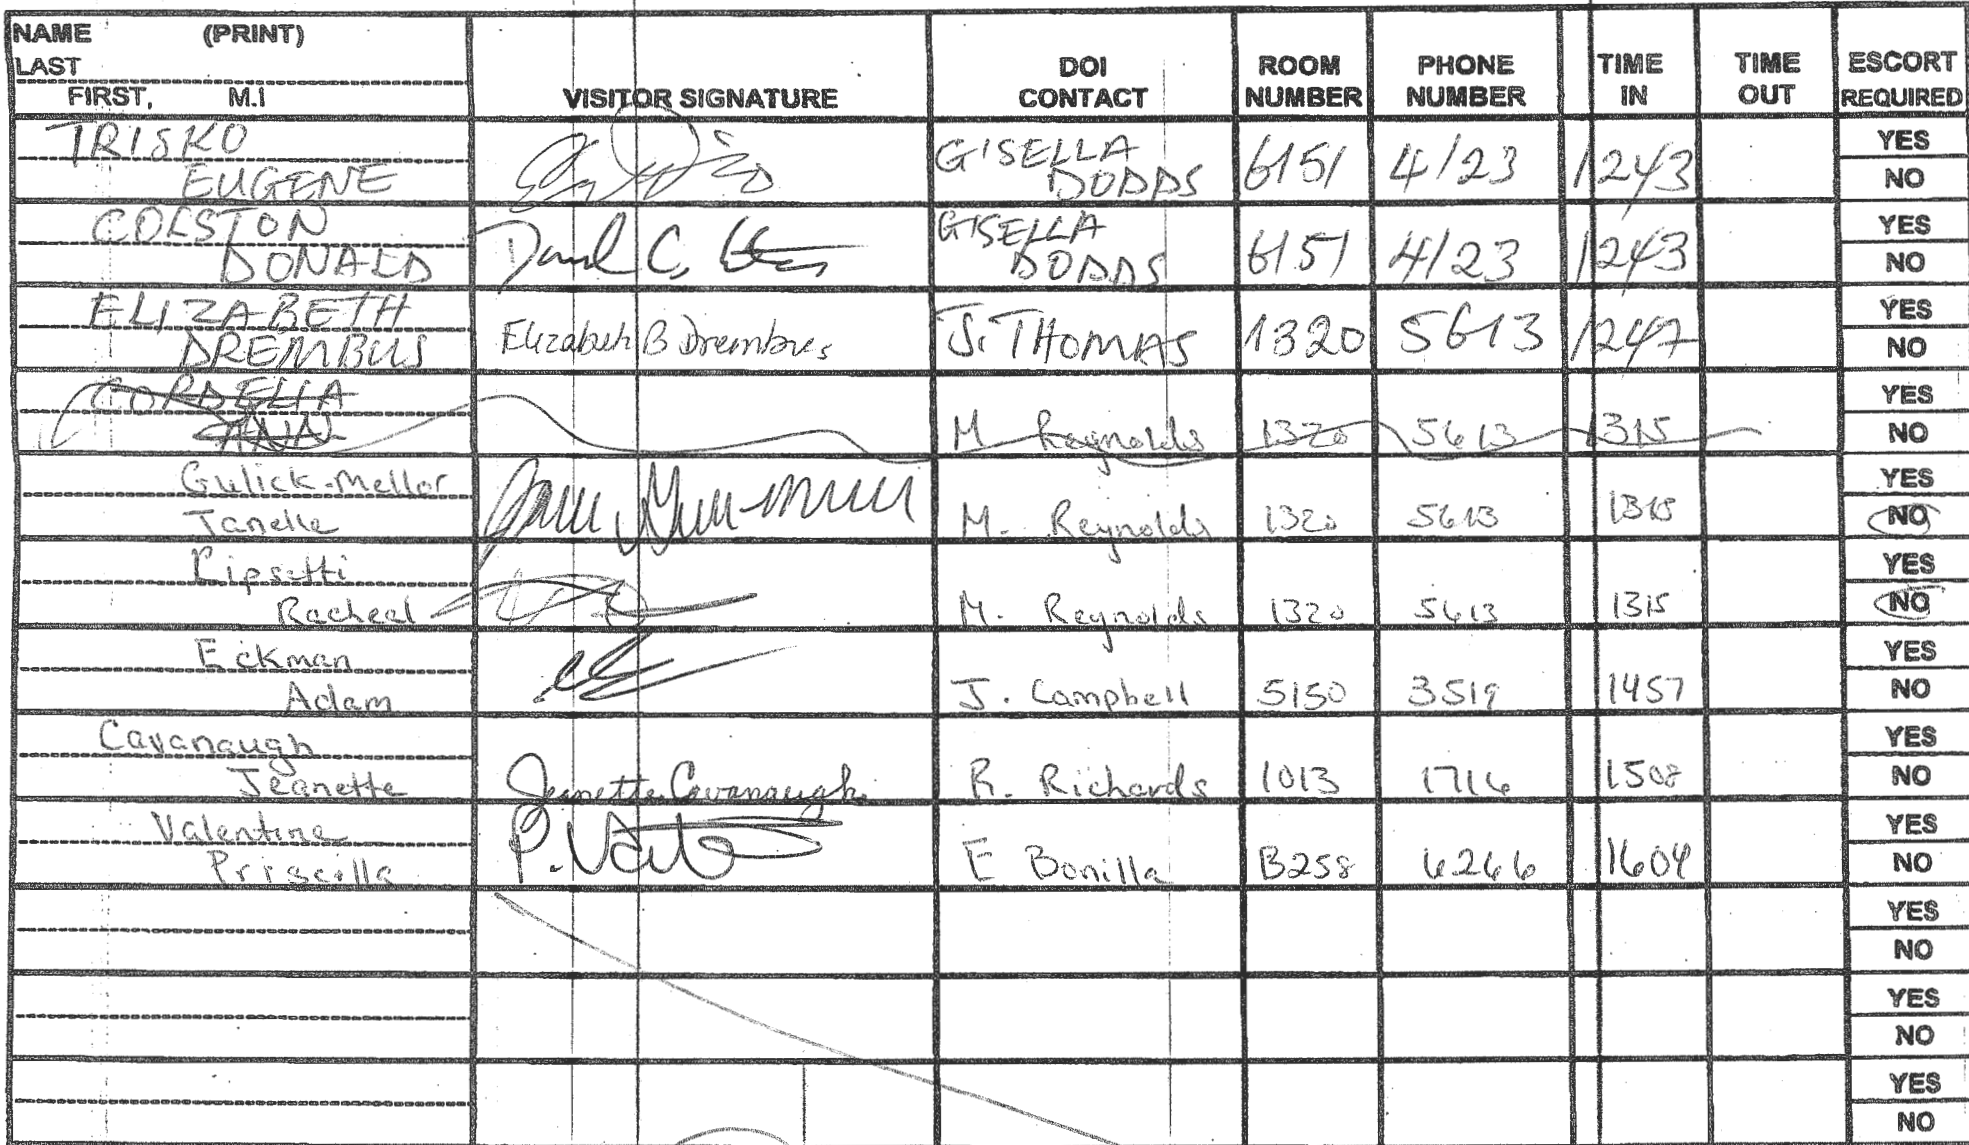 NAME (PRINT)
LAST
FIRST, M.I
VISITOR SIGNATURE
DOI CONTACT
ROOM NUMBER
PHONE NUMBER
TIME IN
TIME OUT
ESCORT REQUIRED
TRISKO
EUGENE
GISELLA DODDS 6151 4123 1243 YES NO
COLSTON
DONALD
GISELLA DODDS 6151 4123 1243 YES NO
ELIZABETH
DREMBUS
Elizabeth B Drembus J. THOMAS 1320 5613 1247 YES NO
CORDELIA
ANN
M Reynolds 1320 5613 1315 YES NO
Gulick-Mellor
Janelle
M. Reynolds 1320 5613 1315 YES NO
Racheal
M. Reynolds 1320 5613 1315 YES NO
Eckman
Adam
J. Campbell 5150 3519 1457 YES NO
Cavanaugh
Jeanette
Jeanette Cavanaugh R. Richards 1013 1716 1508 YES NO
Valentine
Priscilla
E Bonilla B258 6266 1604 YES NO
YES NO
YES NO
YES NO